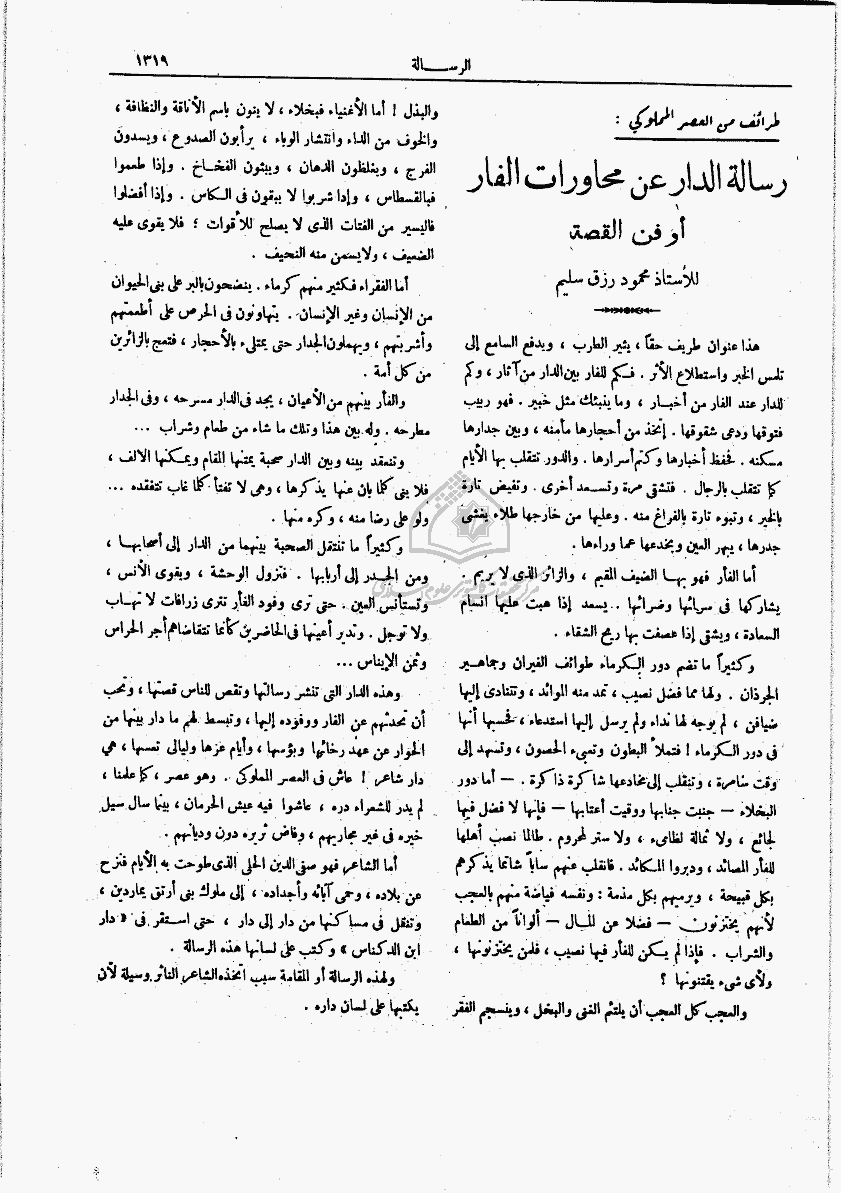 الرسالة
١٣١٩
طرائف من العصر المملوكي :
رسالة الدار عن محاورات الفار
أو فن القصة
للأستاذ محمود رزق سليم
هذا عنوان طريف حقاً ، يثير الطرب ، ويدفع السامع إلى
تلمس الخبر واستطلاع الأثر . فكم للفار بين الدار من آثار ، وكم
للدار عند الفار من أخبار ، وما ينبئك مثل خبير . فهو ربيب
فتوقها ودعى شقوقها . إتخذ من أحجارها مأمنه ، وبين جدارها
مسكنه . فحفظ أخبارها وكتم أسرارها . والدور تتقلب بها الأيام
كما تتقلب بالرجال . فتشقى مرة وتسعد أخرى . وتفيض تارة
بالخير ، وتبوء تارة بالفراغ منه . وعليها من خارجها طلاء يغشى
جدرها ، يبهر العين ويخدعها عما وراءها .
أما الفأر فهو بها الضيف المقيم ، والزائر الذى لا يريم .
يشاركها فى سرائها وضرائها .. يسعد إذا هبت عليها أنسام
السعادة ، ويشقى إذا عصفت بها ريح الشقاء .
وكثيراً ما تضم دور الكرماء طوائف الفيران وجماهير
الجرذان . ولها مما فضل نصيب ، تمد منه الموائد ، وتتنادى إليها
ضيافن ، لم يوجه لها نداء ولم يرسل إليها استدعاء ، فحسبها أنها
فى دور الكرماء ! فتملأ البطون وتعبىء الحصون ، وتشهد إلى
وقت سامرة ، وتنقلب إلى مخادعها شاكرة ذاكرة . — أما دور
البخلاء — جنبت جنابها ووقيت أعتابها — فإنها لا فضل فيها
لجائع ، ولا ثمالة لظامىء ، ولا ستر لمحروم . طالما نصب أهلها
للفأر المصائد ، ودبروا المكائد . فانقلب عنهم ساباً شاتما يذكرهم
بكل قبيحة ، ويرميهم بكل مذمة : ونفسه فياضة منهم بالعجب
لأنهم يختزنون — فضلا عن المال — ألواناً من الطعام
والشراب . فإذا لم يكن للفأر فيها نصيب ، فلمن يختزنونها ،
ولأى شىء يقتنونها ؟
والعجب كل العجب أن يلتئم الغنى والبخل ، وينسجم الفقر
والبذل ! أما الأغنياء فبخلاء ، لا ينون باسم الأناقة والنظافة ،
والخوف من الداء وانتشار الوباء ، يرأبون الصدوع ، ويسدون
الفرج ، ويغلظون الدهان ، ويبثون الفخاخ . وإذا طعموا
فبالقسطاس ، وإذا شربوا لا يبقون فى الكاس . وإذا أفضلوا
فاليسير من الفتات الذى لا يصلح للأقوات ؛ فلا يقوى عليه
الضعيف ، ولا يسمن منه النحيف .
أما الفقراء فكثير منهم كرماء . ينضحون بالبر على بنى الحيوان
من الإنسان وغير الإنسان . يتهاونون فى الحرص على أطعمتهم
وأشربتهم ، ويهملون الجدار حتى يمتلىء بالأحجار ، فتمج بالزائرين
من كل أمة .
والفأر بينهم من الأعيان ، يجد فى الدار مسرحه ، وفى الجدار
مطارحه . وله بين هذا وتلك ما شاء من طعام وشراب ...
وتنعقد بينه وبين الدار صحبة يمتنها المقام ويمكنها الالف ،
فلا ينى كلما بان عنها يذكرها ، وهى لا تفتأ كلما غاب تتفقده ...
ولو على رضا منه ، وكره منها .
وكثيراً ما تنتقل الصحبة بينهما من الدار إلى أصحابها ،
ومن الجدر إلى أربابها . فتزول الوحشة ، ويقوى الأنس ،
وتستأنس العين . حتى ترى وفود الفأر تترى زرافات لا تهاب
ولا توجل . وتدير أعينها فى الحاضرين كأنما تتقاضاهم أجر الحراس
وثمن الإيناس ...
وهذه الدار التى تنشر رسالتها وتقص للناس قصتها ، وتحب
أن تحدثهم عن الفار ووفوده إليها ، وتبسط لهم ما دار بينها من
الحوار عن عهد رخائها وبؤسها ، وأيام عزها وليالى تعسها ، هي
دار شاعر ! عاش فى العصر المملوكى . وهو عصر ، كما علمنا ،
لم يدر للشعراء دره ، عاشوا فيه عيش الحرمان ، بينما سال سيل
خيره فى غير مجاريهم ، وفاض ثريره دون وديانهم .
أما الشاعر فهو صفى الدين الحلى الذى طوحت به الأيام فنزح
عن بلاده ، وحمى آبائه وأجداده ، إلى ملوك بنى أرتق بماردين ،
وتنقل فى مساكنها من دار إلى دار ، حتى استقر فى « دار
ابن الدكناس » وكتب على لسانها هذه الرسالة .
ولهذه الرسالة أو المقامة سبب اتخذه الشاعر الناثر وسيلة لأن
يكتبها على لسان داره .